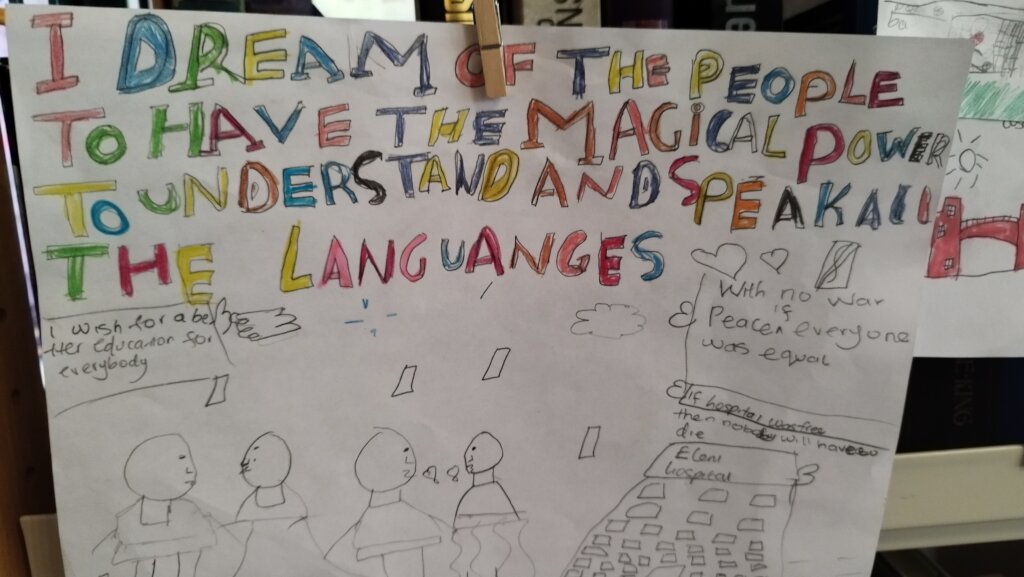 I DREAM OF THE PEOPLE
TO HAVE THE MAGICAL POWER
TO UNDERSTAND AND SPEAK All
THE LANGUANGES
I wish for a be
tter educator for
everybody
With no war
if
Peacen everyone
was equal
If hospital was free
then nobody will have
die
Eleni
hospital
KING